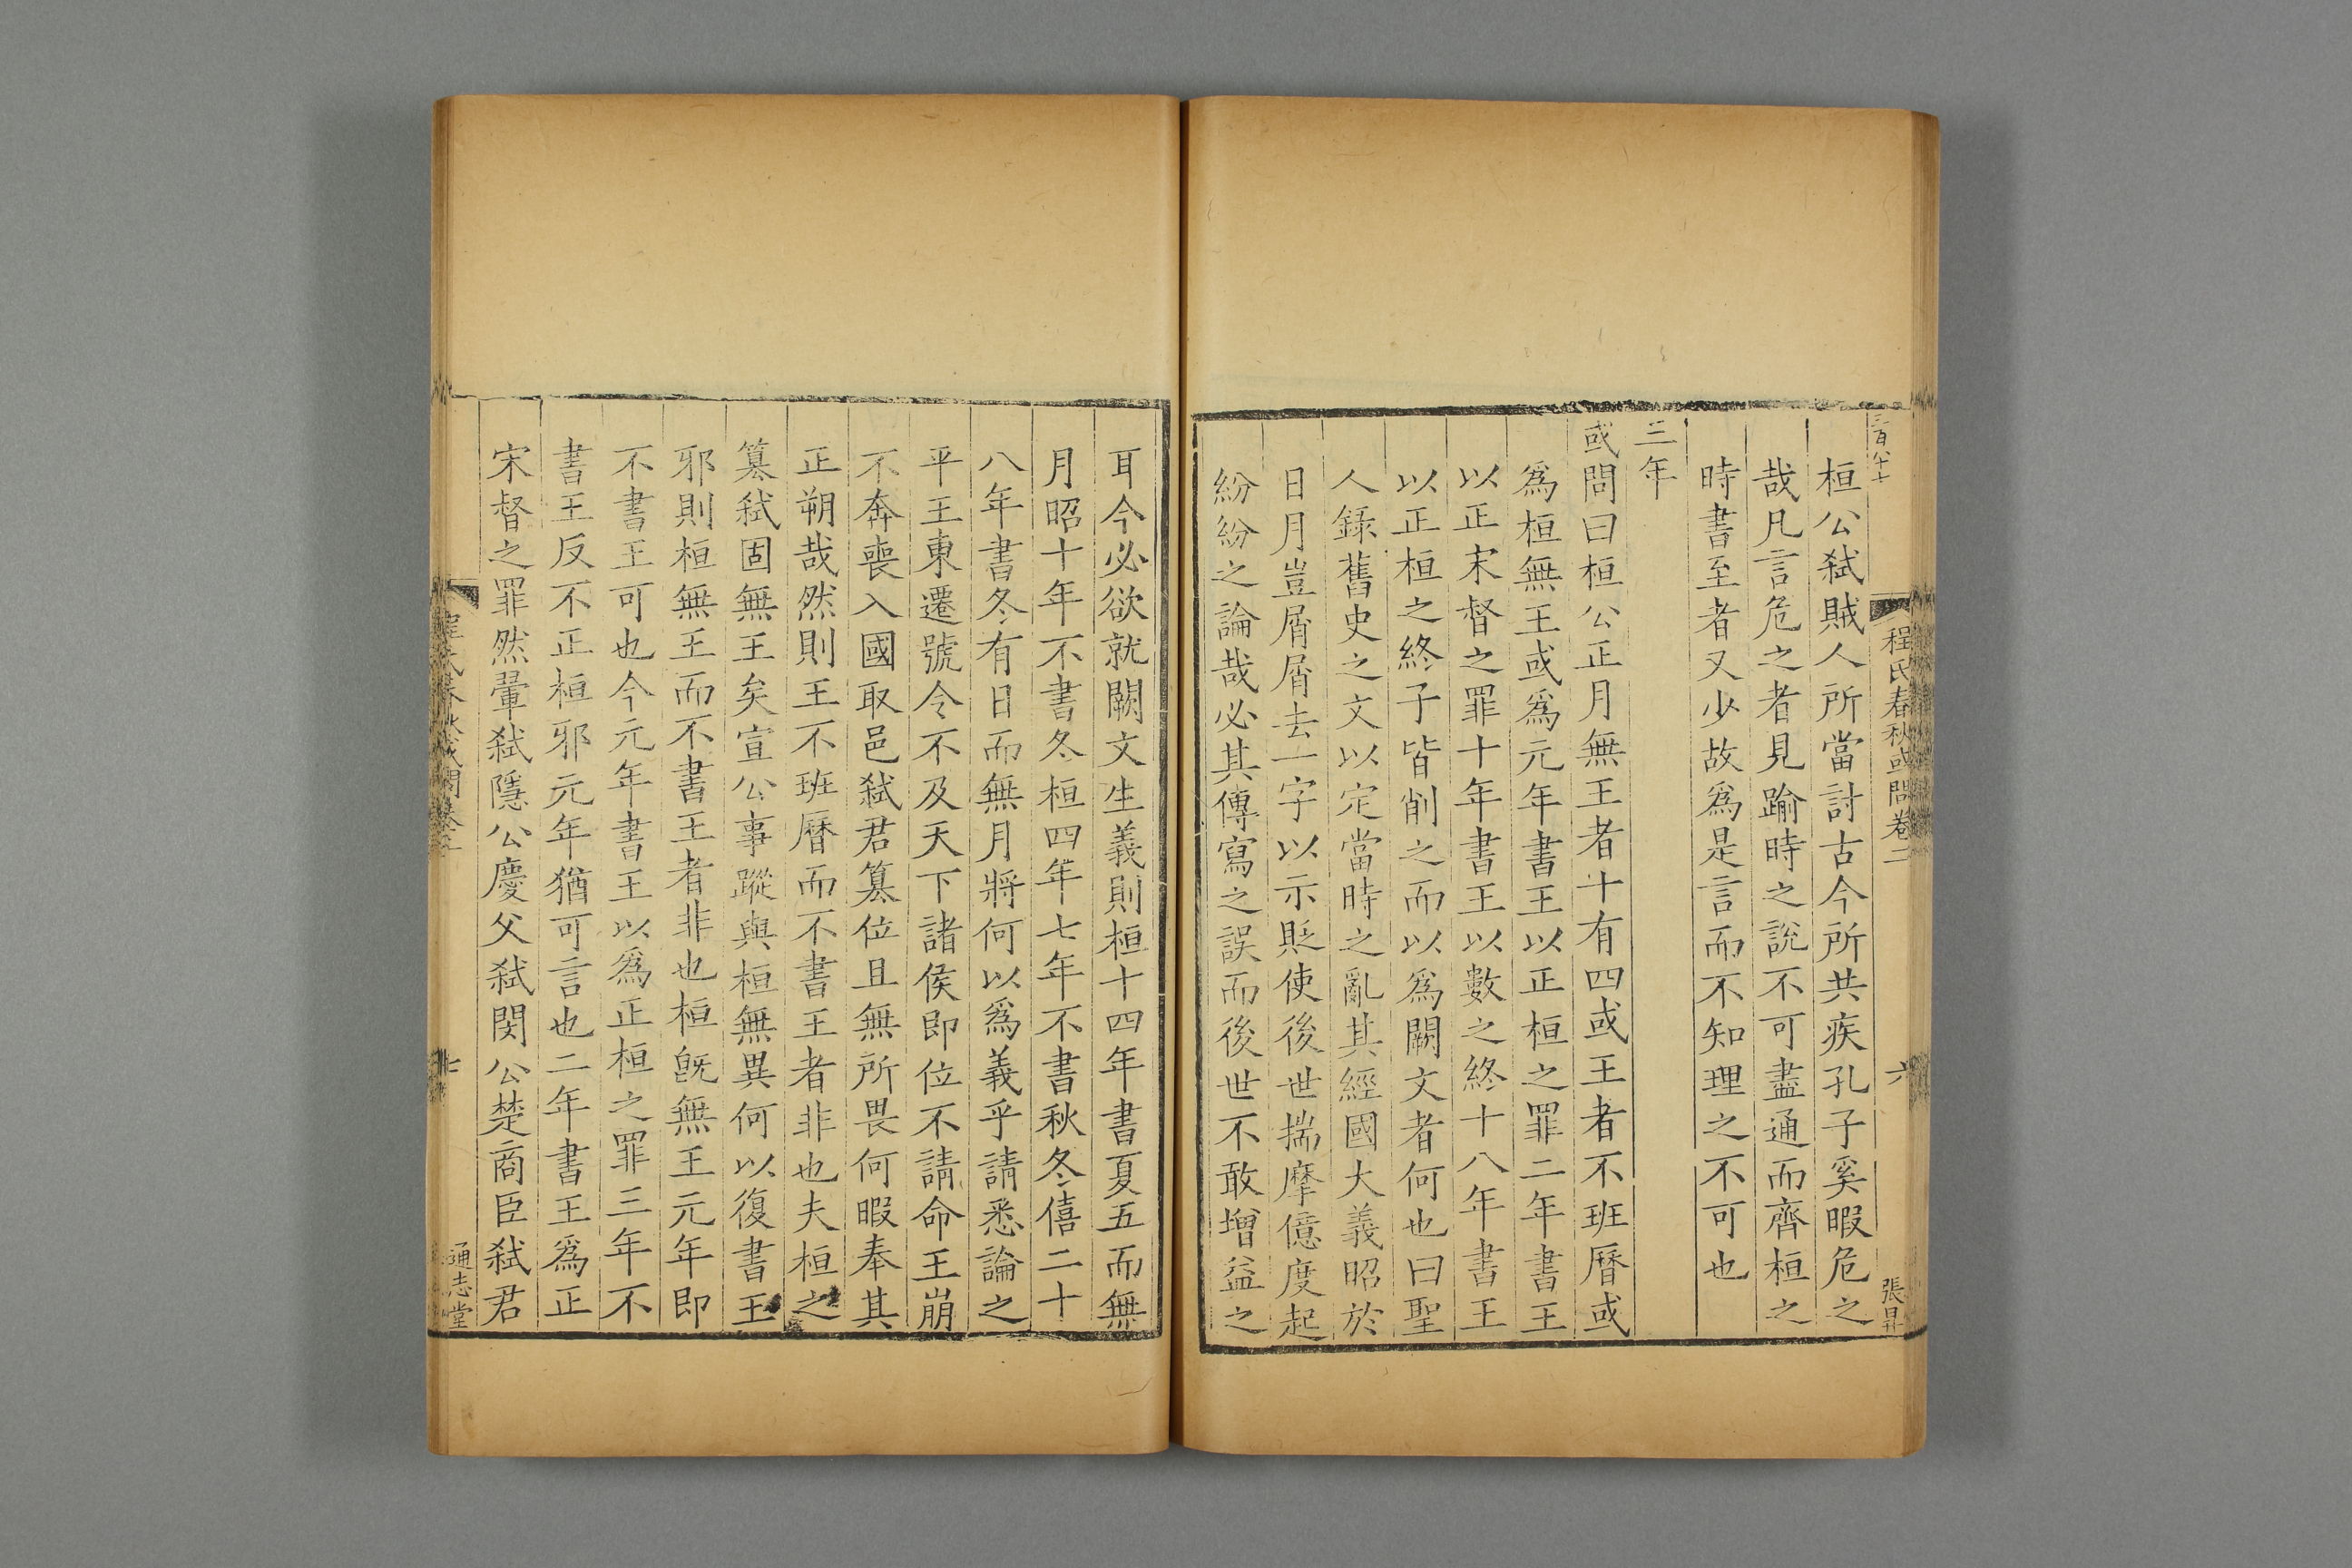 程氏春秋或問卷二
六
張昇
桓公弒賊人所當討古今所共疾孔子奚暇危之
哉凡言危之者見踰時之說不可盡通而齊桓之
時書至者又少故爲是言而不知理之不可也
三年
或問曰桓公正月無王者十有四或王者不班曆或
爲桓無王或爲元年書王以正桓之罪二年書王
以正宋督之罪十年書王以數之終十八年書王
以正桓之終子皆削之而以爲闕文者何也曰聖
人錄舊史之文以定當時之亂其經國大義昭於
日月豈屑屑去一字以示貶使後世揣摩億度起
紛紛之論哉必其傳寫之誤而後世不敢增益之
耳今必欲就闕文生義則桓十四年書夏五而無
月昭十年不書冬桓四年七年不書秋冬僖二十
八年書冬有日而無月將何以爲義乎請悉論之
平王東遷號令不及天下諸侯即位不請命王崩
不奔喪入國取邑弒君篡位且無所畏何暇奉其
正朔哉然則王不班曆而不書王者非也夫桓之
篡弒固無王矣宣公事蹤與桓無異何以復書王
邪則桓無王而不書王者非也桓旣無王元年即
不書王可也今元年書王以爲正桓之罪三年不
書王反不正桓邪元年猶可言也二年書王爲正
宋督之罪然翬弒隱公慶父弒閔公楚商臣弒君
七
通志堂